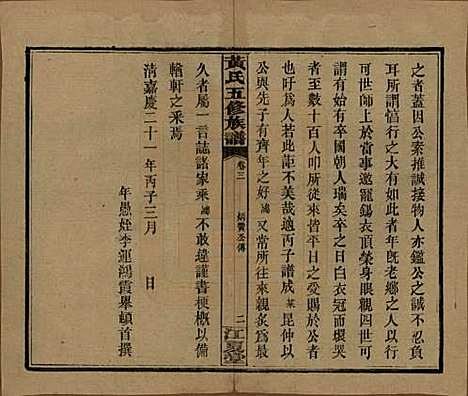 之者蓋因公素推誠接物人亦鑑公之誠不忍負
耳所尤異者慥行之大以此者年既老鄉之人以其行
可世師上於當事遂邀寵錫衣頂榮身眼親或
謂有始有卒國朝人瑞矣卒之日白衣冠而煨哭
者至數十百人叩所從來皆平日之受賜於公者
也吁爲人若此詎不美哉適丙子譜成某昆仲以
公與先子有齊年之好鴻又常所往來炙公爲最
黃氏五修族譜
卷三
炳賢公傳
二
江夏堂
久者屬一言誌諸家乘鴻不敢違謹書梗概以備
輶軒之采焉
清嘉慶二十一年丙子三月　日
年愚姪李運鴻霞舉頓首撰